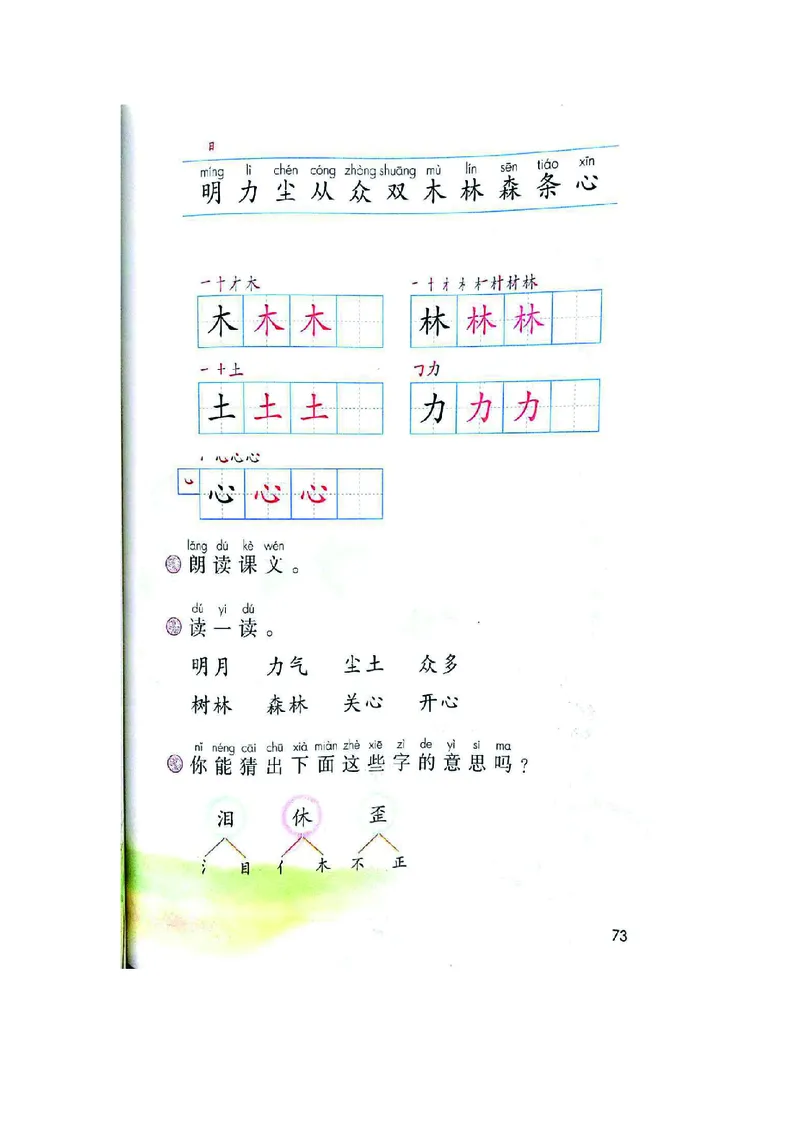 日
míng lì chén cóng zhòng shuāng mù lín sēn tiáo xīn
明 力 尘 从 众 双 木 林 森 条 心
一 十 才 木 一 十 才 木 木 村 材 林
木 木 木 林 林 林
一 十 土 ㇆ 力
土 土 土 力 力 力
心 心 心
心 心 心
lǎng dú kè wén
朗 读 课 文 。
dú yi dú
读 一 读 。
明月 力气 尘土 众多
树林 森林 关心 开心
nǐ néng cāi chū xià miàn zhè xiē zì de yì si ma
你 能 猜 出 下 面 这 些 字 的 意 思 吗 ?
泪 休 歪
氵 目 亻 木 不 正
73